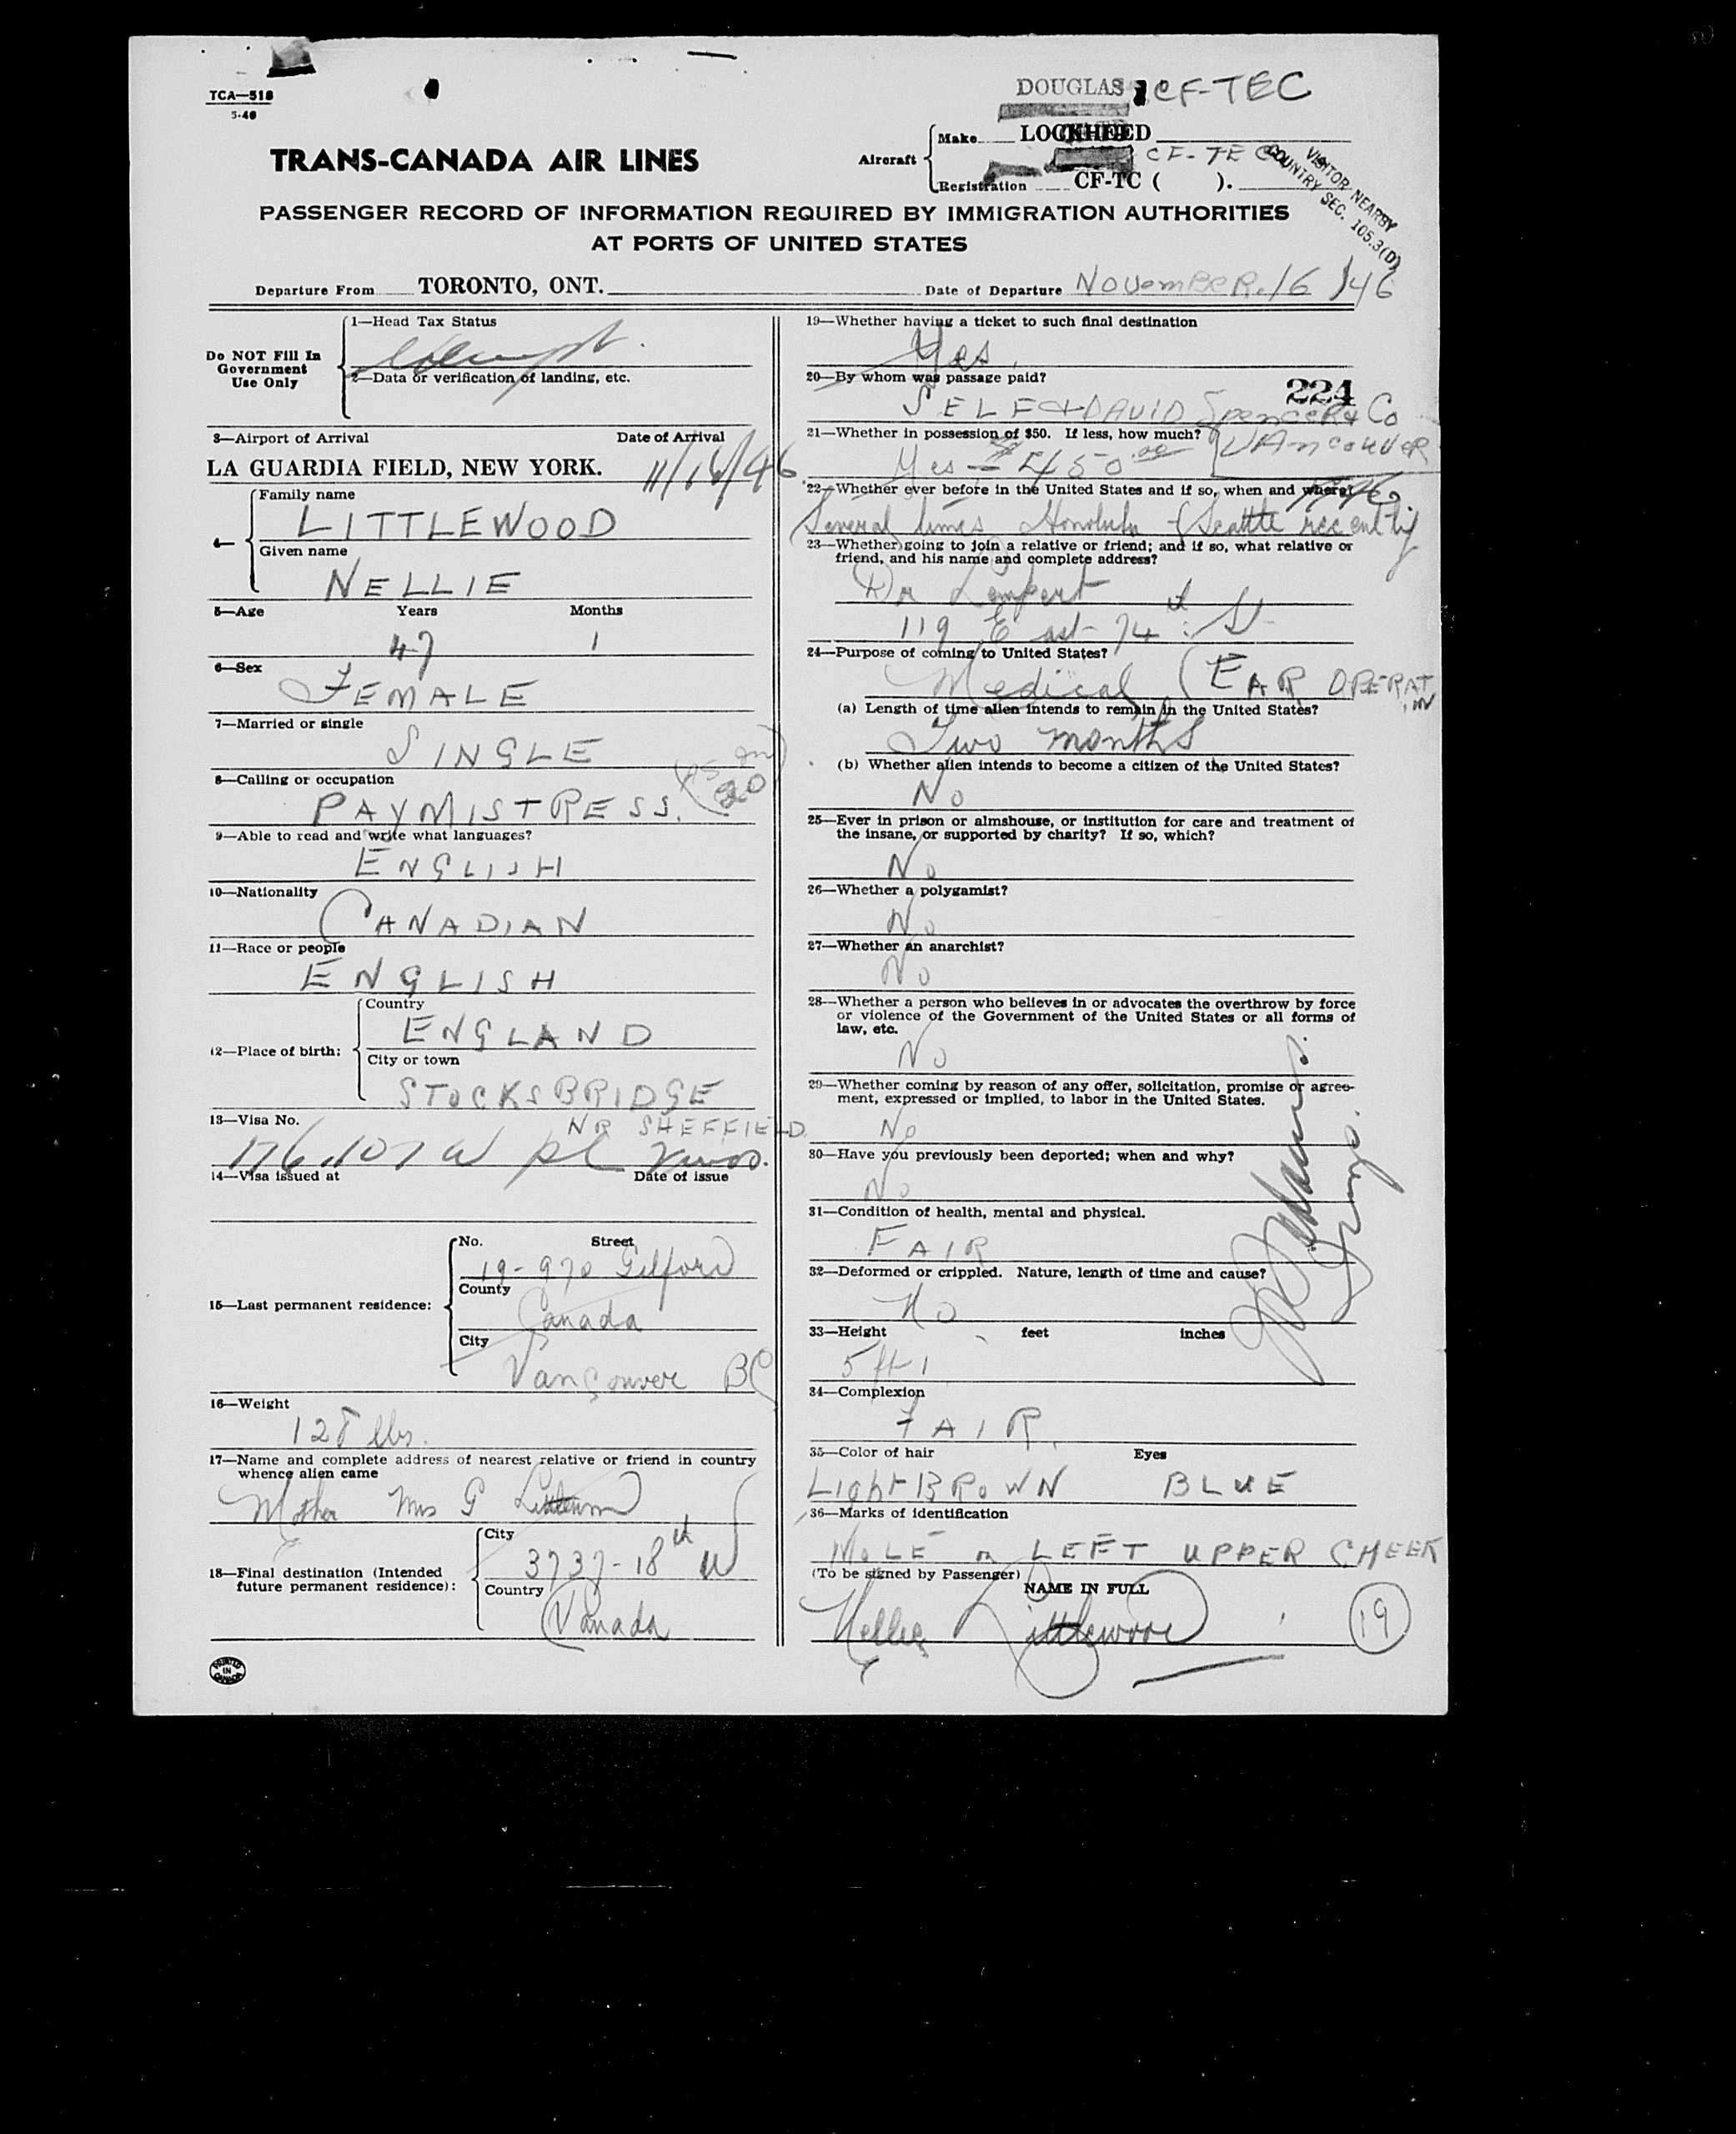 TCA—518
5-46
DOUGLAS CF-TEC
TRANS-CANADA AIR LINES
Aircraft
Make LOCKHEED
CF-TEC
Registration CF-TC ( ).
VISITOR NEARBY
COUNTRY SEC. 105.3(D)
PASSENGER RECORD OF INFORMATION REQUIRED BY IMMIGRATION AUTHORITIES
AT PORTS OF UNITED STATES
Departure From TORONTO, ONT.
Date of Departure NOVEMBER. 16 /46
Do NOT Fill In
Government
Use Only
1—Head Tax Status
2—Data or verification of landing, etc.
3—Airport of Arrival Date of Arrival
LA GUARDIA FIELD, NEW YORK. 11/16/46
4—
Family name
LITTLEWOOD
Given name
NELLIE
5—Age Years Months
47 1
6—Sex
FEMALE
7—Married or single
SINGLE
8—Calling or occupation
PAYMISTRESS.
9—Able to read and write what languages?
ENGLISH
10—Nationality
CANADIAN
11—Race or people
ENGLISH
12—Place of birth:
Country
ENGLAND
City or town
STOCKSBRIDGE
NR SHEFFIELD
13—Visa No.
176,107
14—Visa issued at Date of issue
15—Last permanent residence:
No. Street
19-970 Gilford
County
Canada
City
Vancouver BC
16—Weight
128 lbs.
17—Name and complete address of nearest relative or friend in country
whence alien came
Mother Mrs G
18—Final destination (Intended
future permanent residence):
City
3737-18th W
Country
Canada
PRINTED
IN
CANADA
19—Whether having a ticket to such final destination
Yes
20—By whom was passage paid?
224
SELF & DAVID Spencer & Co
Vancouver
21—Whether in possession of $50. If less, how much?
Yes — 450.00
22—Whether ever before in the United States and if so, when and where?
Several times Honolulu & Seattle recently
23—Whether going to join a relative or friend; and if so, what relative or
friend, and his name and complete address?
Dr Lempert
119 East 74th St
24—Purpose of coming to United States?
Medical (EAR OPERATIN
(a) Length of time alien intends to remain in the United States?
Two months
(b) Whether alien intends to become a citizen of the United States?
No
25—Ever in prison or almshouse, or institution for care and treatment of
the insane, or supported by charity? If so, which?
No
26—Whether a polygamist?
No
27—Whether an anarchist?
No
28—Whether a person who believes in or advocates the overthrow by force
or violence of the Government of the United States or all forms of
law, etc.
No
29—Whether coming by reason of any offer, solicitation, promise or agree-
ment, expressed or implied, to labor in the United States.
No
30—Have you previously been deported; when and why?
No
31—Condition of health, mental and physical.
FAIR
32—Deformed or crippled. Nature, length of time and cause?
No
33—Height feet inches
5 ft 1
34—Complexion
FAIR
35—Color of hair Eyes
Light BROWN BLUE
36—Marks of identification
MOLE on LEFT UPPER CHEEK
(To be signed by Passenger)
NAME IN FULL
Nellie Littlewood
19